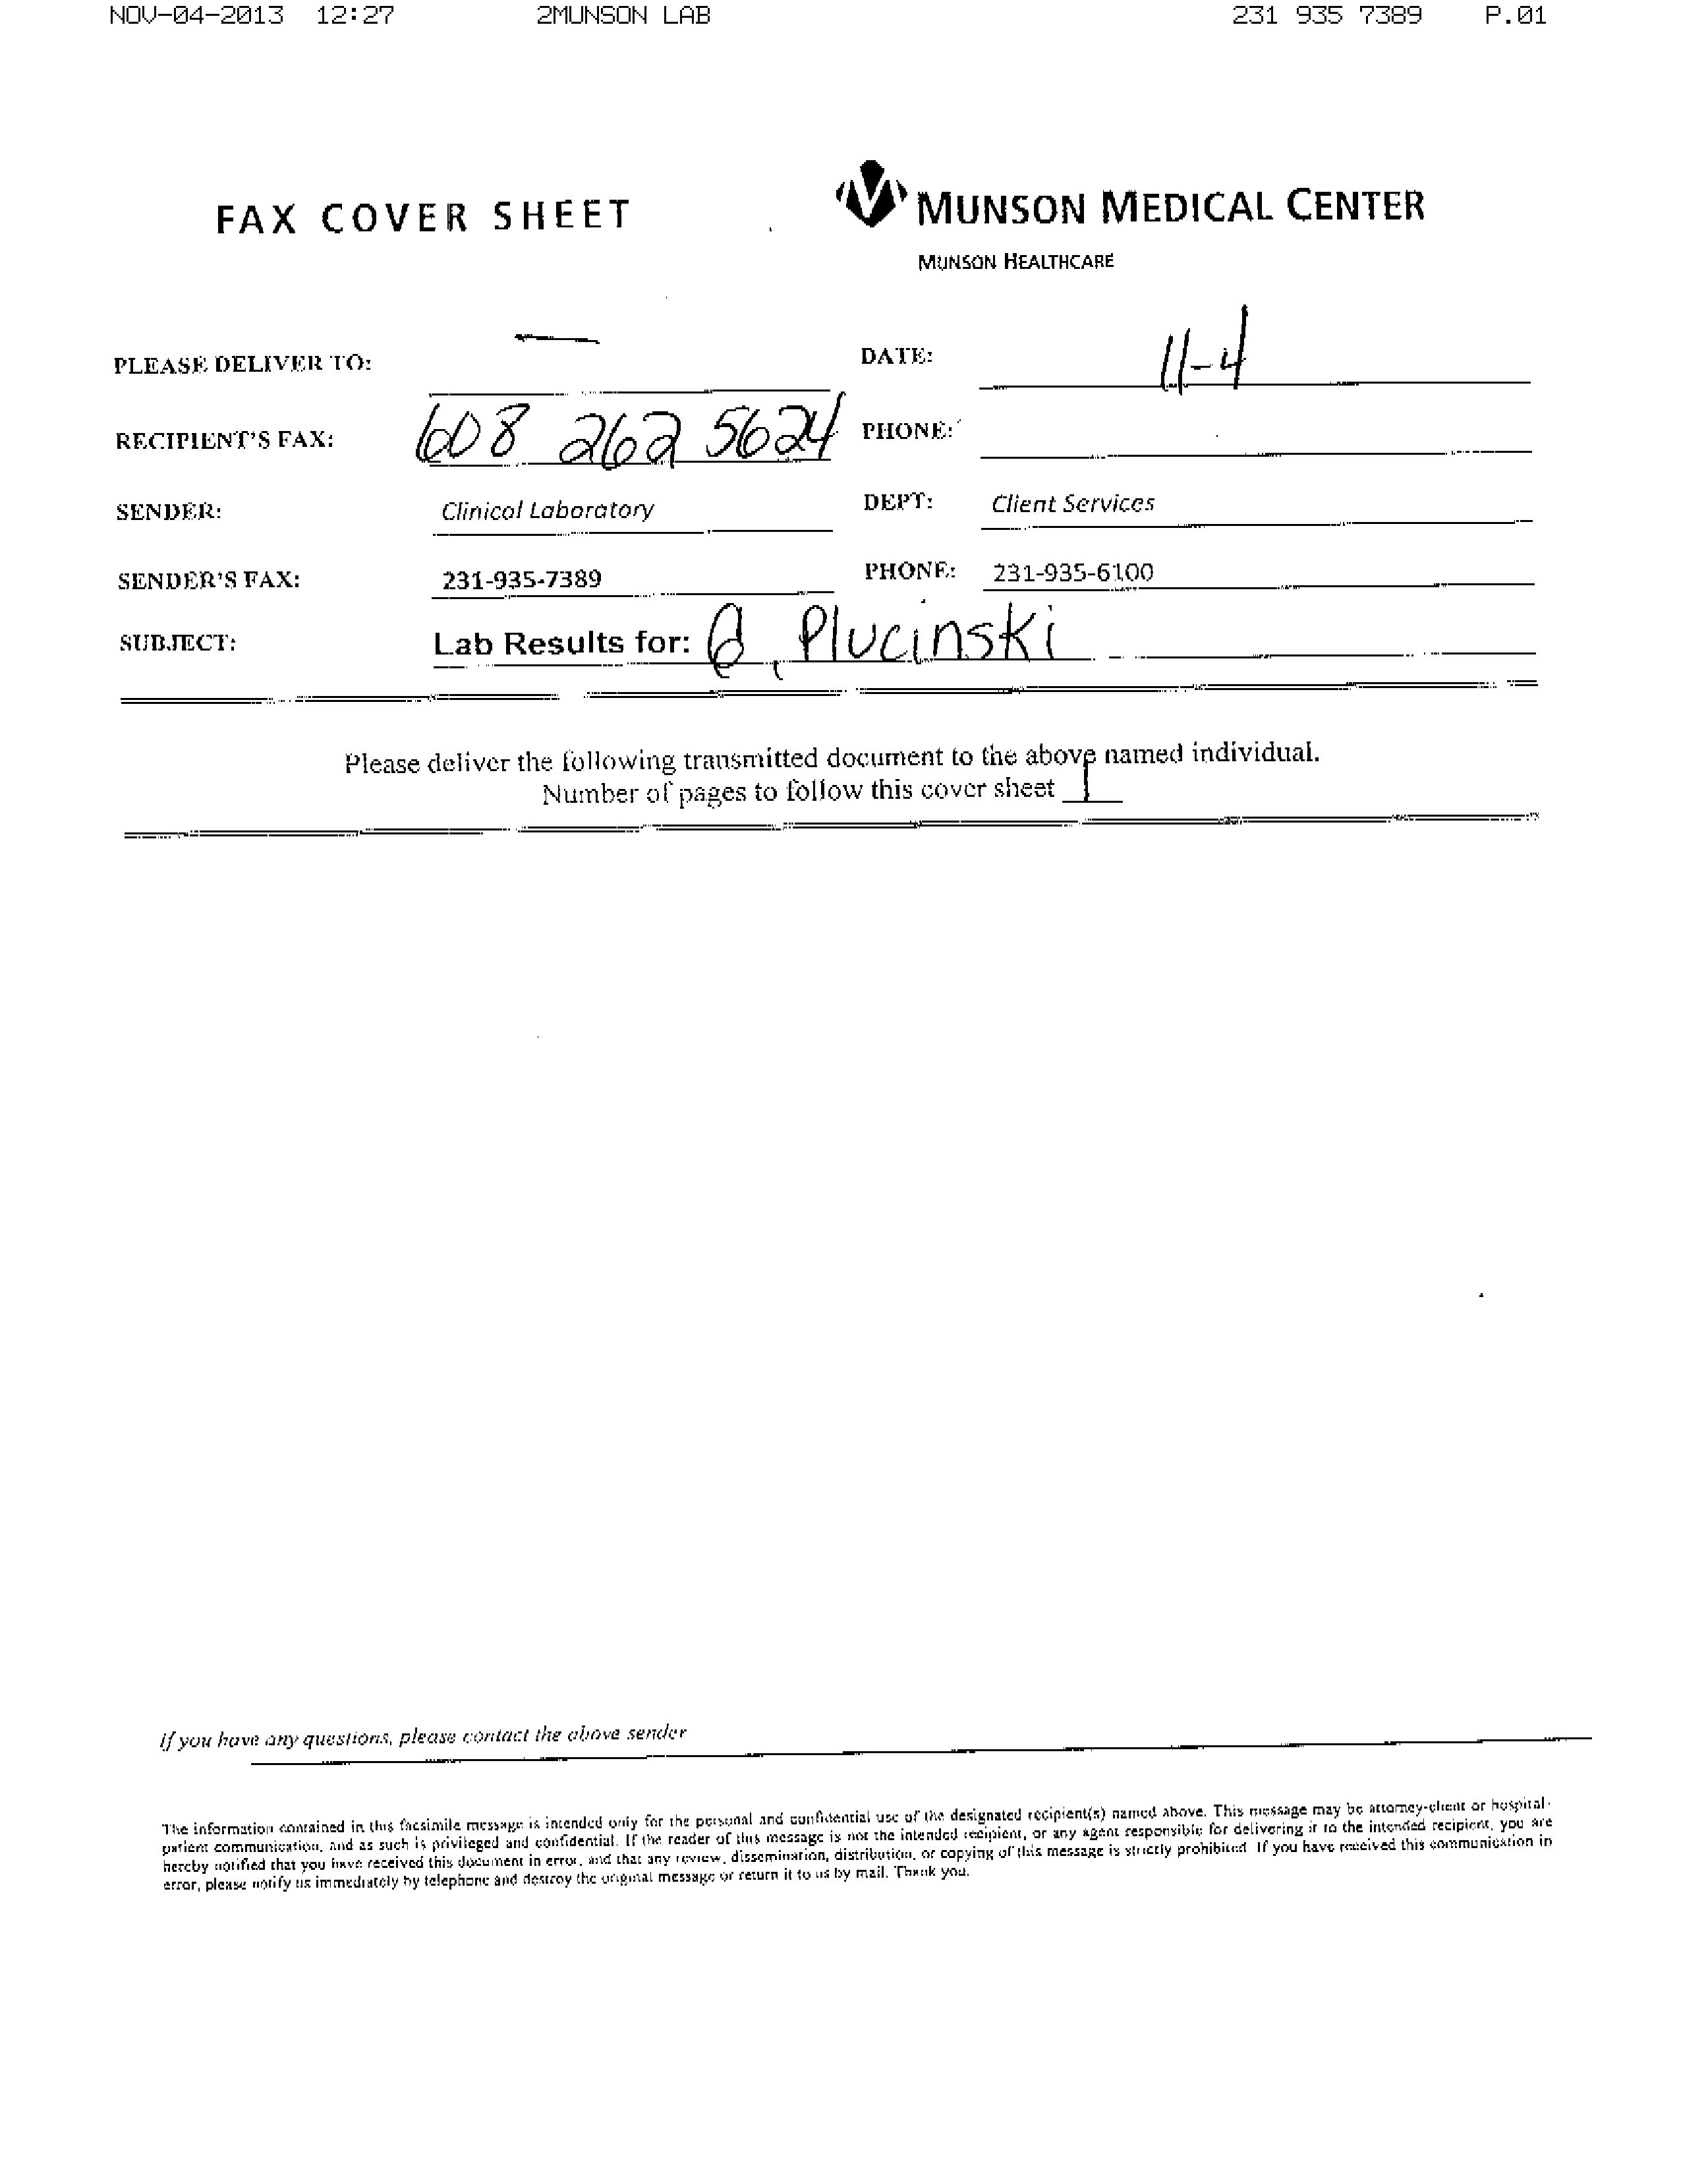 NOV-04-2013 12:27 2MUNSON LAB 231 935 7389 P.01
FAX COVER SHEET
MUNSON MEDICAL CENTER
MUNSON HEALTHCARE
PLEASE DELIVER TO: —
DATE: 11-4
RECIPIENT'S FAX: 608 262 5624
PHONE:
SENDER: Clinical Laboratory
DEPT: Client Services
SENDER'S FAX: 231-935-7389
PHONE: 231-935-6100
SUBJECT: Lab Results for: Plucinski
Please deliver the following transmitted document to the above named individual.
Number of pages to follow this cover sheet 1
If you have any questions, please contact the above sender
The information contained in this facsimile message is intended only for the personal and confidential use of the designated recipient(s) named above. This message may be attorney-client or hospital-
patient communication, and as such is privileged and confidential. If the reader of this message is not the intended recipient, or any agent responsible for delivering it to the intended recipient, you are
hereby notified that you have received this document in error, and that any review, dissemination, distribution, or copying of this message is strictly prohibited. If you have received this communication in
error, please notify us immediately by telephone and destroy the original message or return it to us by mail. Thank you.